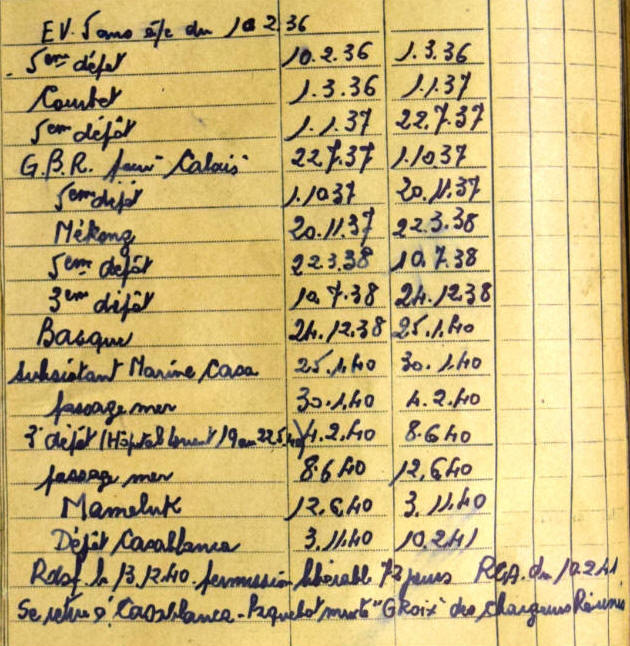 EV. 5 ans à/c du 10.2.36
5em dépôt 10.2.36 1.3.36
Courbet 1.3.36 1.1.37
5em dépôt 1.1.37 22.7.37
G.B.R. pour "Calais" 22.7.37 1.10.37
5em dépôt 1.10.37 20.11.37
Mékong 20.11.37 22.3.38
5em dépôt 22.3.38 10.7.38
3em dépôt 10.7.38 24.12.38
Basque 24.12.38 25.1.40
Subsistant Marine Casa 25.1.40 30.1.40
passage mer 30.1.40 4.2.40
3e dépôt (Hôpital Lorient 19 au 22.5.40) 4.2.40 8.6.40
passage mer 8.6.40 12.6.40
Mameluk 12.6.40 3.11.40
Dépôt Casablanca 3.11.40 10.2.41
le 13.12.40. permission libérable 72 jours RCA. du 10.2.41
Se retire à Casablanca - Paquebot mixte "GROIX" des Chargeurs Réunis